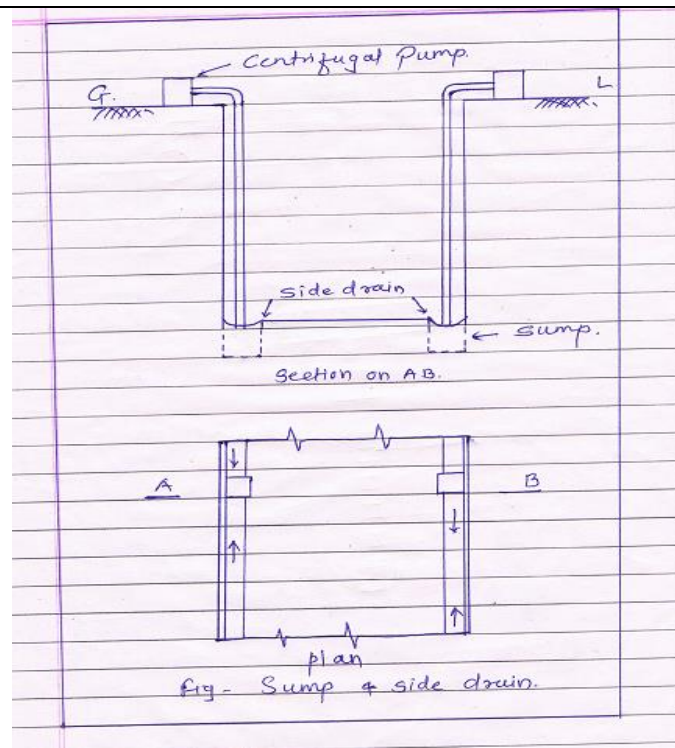 Centrifugal Pump.
G. L
side drain
sump.
Section on AB.
A B
plan
fig- Sump & side drain.